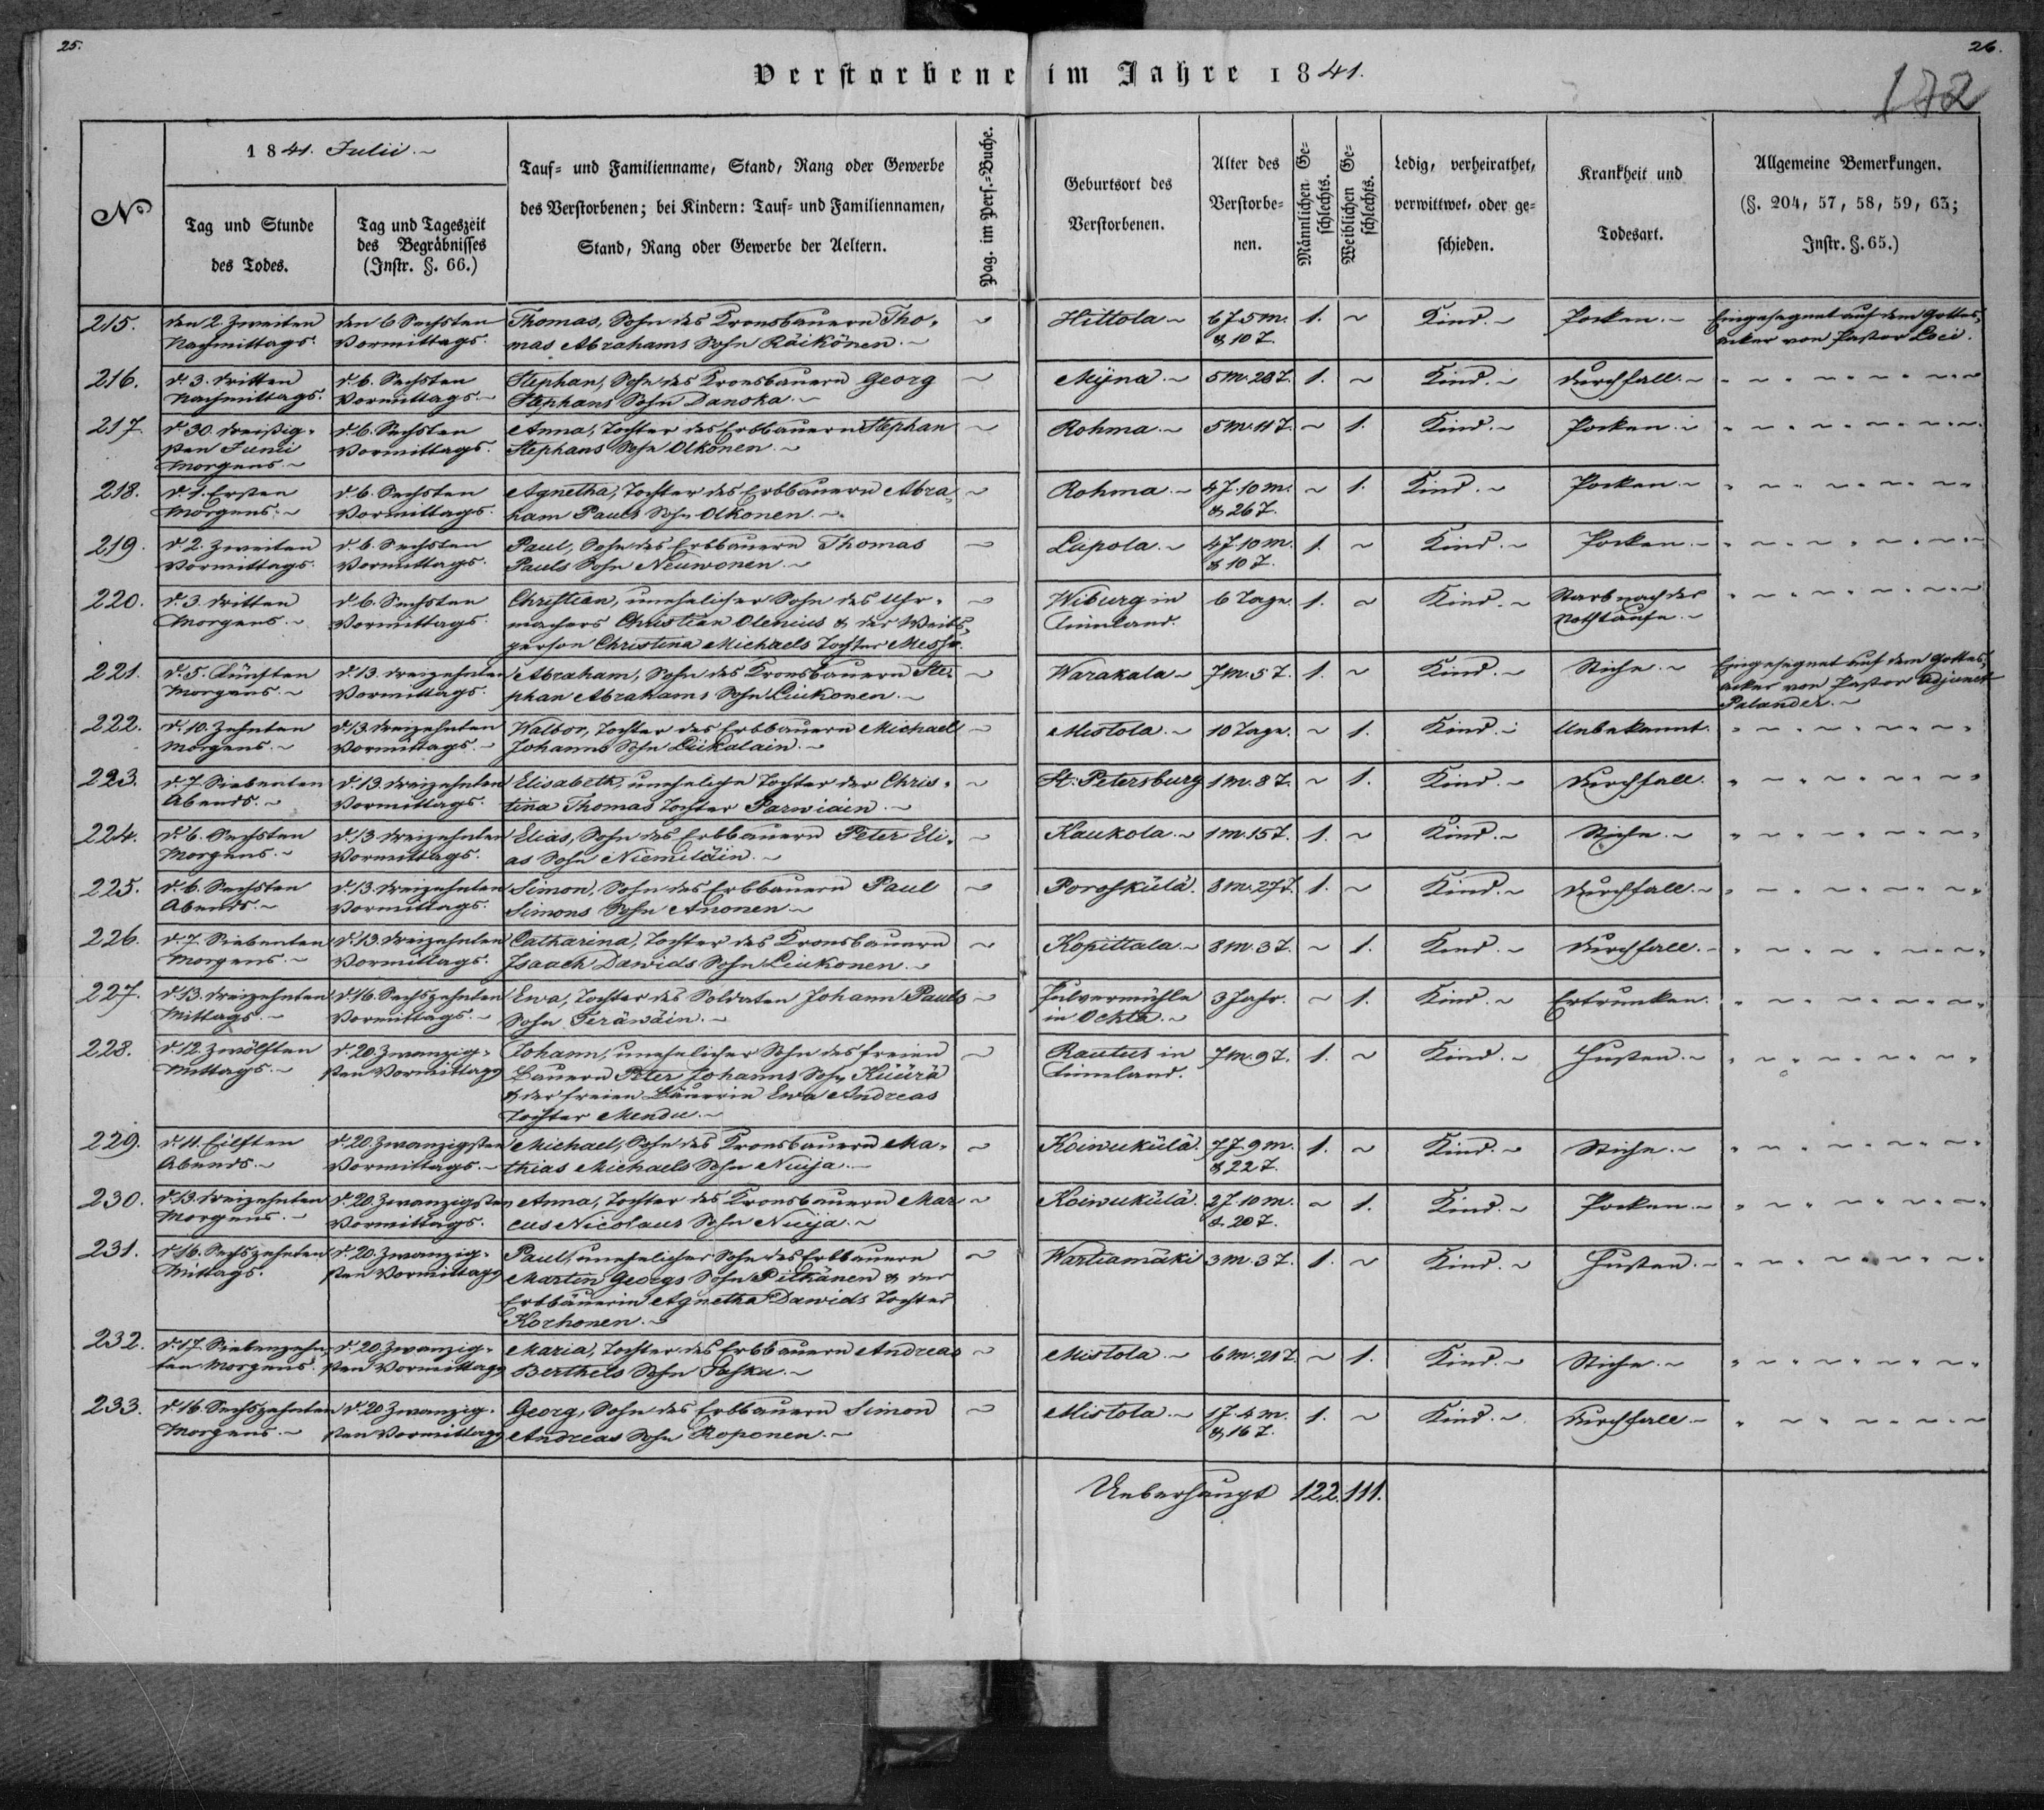 25.
26.
Verstorbene im Jahre 1841.
172
№
1841. Julii.~
Tag und Stunde
des Todes.
Tag und Tageszeit
des Begräbnisses
(Instr. §. 66.)
Tauf- und Familienname, Stand, Rang oder Gewerbe
des Verstorbenen; bei Kindern: Tauf- und Familiennamen,
Stand, Rang oder Gewerbe der Aeltern.
Pag. im Pers.-Buche.
Geburtsort des
Verstorbenen.
Alter des
Verstorbe-
nen.
Männlichen Ge-
schlechts.
Weiblichen Ge-
schlechts.
Ledig, verheirathet,
verwittwet, oder ge-
schieden.
Krankheit und
Todesart.
Allgemeine Bemerkungen.
(§. 204, 57, 58, 59, 63;
Instr. §. 65.)
215. den 2. Zweiten den 6 Sechsten Thomas, Sohn des Kronsbauern Tho- ~ Hittola ~ 6 J. 5 M. 1. ~ Kind.~ Pocken.~ Eingesegnet auf dem Gottes-
Nachmittags. Vormittags. mas Abrahams Sohn Räikönen.~ & 10 T. acker von Pastor Loci.
216. d. 3. Dritten d. 6. Sechsten Stephan, Sohn des Kronsbauern Georg ~ Mÿna.~ 5 M. 28 T. 1. ~ Kind.~ Durchfall.~ " ~ " ~ " ~ " ~
Nachmittags. Vormittags.~ Stephans Sohn Danska.~
217. d. 30. Dreißig- d. 6. Sechsten Anna, Tochter des Erbbauern Stephan ~ Rohma.~ 5 M. 11 T. ~ 1. Kind.~ Pocken.~ " ~ " ~ " ~ " ~
sten Junii Vormittags. Stephans Sohn Olkonen.~
Morgens.~
218. d. 1. Ersten d. 6. Sechsten Agnetha, Tochter des Erbbauern Abra- ~ Rohma.~ 4 J. 10 M. ~ 1. Kind.~ Pocken.~ " ~ " ~ " ~ " ~
Morgens.~ Vormittags. ham Pauls Sohn Olkonen.~ & 26 T.
219. d. 2. Zweiten d. 6. Sechsten Paul, Sohn des Erbbauern Thomas ~ Lupola.~ 4 J. 10 M. 1. ~ Kind.~ Pocken.~ " ~ " ~ " ~ " ~
Vormittags. Vormittags. Pauls Sohn Neuwonen.~ & 10 T.
220. d. 3. Dritten d. 6. Sechsten Christian, unehelicher Sohn des Uhr- ~ Wiburg in 6 Tage. 1. ~ Kind.~ Starb nach der " ~ " ~ " ~ " ~
Morgens.~ Vormittags. machers Christian Olenius & der Weibs- Finnland. Nothtaufe.~
person Christina Michaels Tochter
221. d. 5. Fünften d. 13. Dreizehnten Abraham, Sohn des Kronsbauern Ste- ~ Warakala ~ 7 M. 5 T. 1. ~ Kind.~ Stiche.~ Eingesegnet auf dem Gottes-
Morgens.~ Vormittags. phan Abrahams Sohn Liukonen.~ acker von Pastor Adjunct
Palander.~
222. d. 10. Zehnten d. 13. Dreizehnten Walbor, Tochter des Erbbauern Michael ~ Mistola.~ 10 Tage. ~ 1. Kind.~ Unbekannt. " ~ " ~ " ~ " ~
Morgens.~ Vormittags.~ Johanns Sohn Liikalain.~
223. d. 7. Siebenten d. 13. Dreizehnten Elisabeth, uneheliche Tochter der Chris- ~ St. Petersburg 1 M. 8 T. ~ 1. Kind.~ Durchfall. " ~ " ~ " ~ " ~
Abends.~ Vormittags. tina Thomas Tochter Parwiäin.~
224. d. 6. Sechsten d. 13. Dreizehnten Elias, Sohn des Erbbauern Peter Eli- ~ Kaukola.~ 1 M. 15 T. 1. ~ Kind.~ Stiche.~ " ~ " ~ " ~ " ~
Morgens.~ Vormittags. as Sohn Niemiläin.~
225. d. 6. Sechsten d. 13. Dreizehnten Simon, Sohn des Erbbauern Paul ~ Poroskülä. 8 M. 27 T. 1. ~ Kind.~ Durchfall.~ " ~ " ~ " ~ " ~
Abends.~ Vormittags. Simons Sohn Anonen.~
226. d. 7. Siebenten d. 13. Dreizehnten Catharina, Tochter des Kronsbauern ~ Kopittala.~ 8 M. 3 T. ~ 1. Kind.~ Durchfall.~ " ~ " ~ " ~ " ~
Morgens.~ Vormittags. Isaach Dawids Sohn Liukonen.~
227. d. 13. Dreizehnten d. 16. Sechszehnten Ewa, Tochter des Soldaten Johann Pauls ~ Pulvermühle 3 Jahr. ~ 1. Kind.~ Ertrunken. " ~ " ~ " ~ " ~
Mittags.~ Vormittags.~ Sohn Teräwäin.~ in Ochta.~
228. d. 12. Zwölften d. 20. Zwanzig- Johann, unehelicher Sohn des freien ~ Rautus in 7 M. 9 T. 1. ~ Kind.~ Husten.~ " ~ " ~ " ~ " ~
Mittags.~ sten Vormittags Bauern Peter Johanns Sohn Küürä Finnland.
& der freien Bäuerin Ewa Andreas
Tochter Mendu.~
229. d. 11. Eilften d. 20. Zwanzigsten Michael, Sohn des Kronsbauern Ma- ~ Koiwukülä. 7 J. 9 M. 1. ~ Kind.~ Stiche.~ " ~ " ~ " ~ " ~
Abends.~ Vormittags.~ thias Michaels Sohn Nuija.~ & 22 T.
230. d. 13. Dreizehnten d. 20. Zwanzigsten Anna, Tochter des Kronsbauern Mar- ~ Koiwukülä. 2 J. 10 M. ~ 1. Kind.~ Pocken.~ " ~ " ~ " ~ " ~
Morgens.~ Vormittags. cus Nicolaus Sohn Nuija.~ & 20 T.
231. d. 16. Sechszehnten d. 20. Zwanzig- Paul, unehelicher Sohn des Erbbauern ~ Wartiamäki 3 M. 3 T. 1. ~ Kind.~ Husten.~ " ~ " ~ " ~ " ~
Mittags. sten Vormittags Martin Georgs Sohn Pitkänen & der
Erbbäuerin Agnetha Dawids Tochter
Korhonen.~
232. d. 17. Siebenzehn- d. 20. Zwanzig- Maria, Tochter des Erbbauern Andreas ~ Mistola.~ 6 M. 21 T. ~ 1. Kind.~ Stiche.~ " ~ " ~ " ~ " ~
ten Morgens. sten Vormittags Berthels Sohn Paska.~
233. d. 16. Sechszehnten d. 20 Zwanzig- Georg, Sohn des Erbbauern Simon ~ Mistola.~ 1 J. 4 M. 1. ~ Kind.~ Durchfall.~ " ~ " ~ " ~ " ~
Morgens.~ sten Vormittags Andreas Sohn Roponen.~ & 16 T.
Ueberhaupt 122. 111.